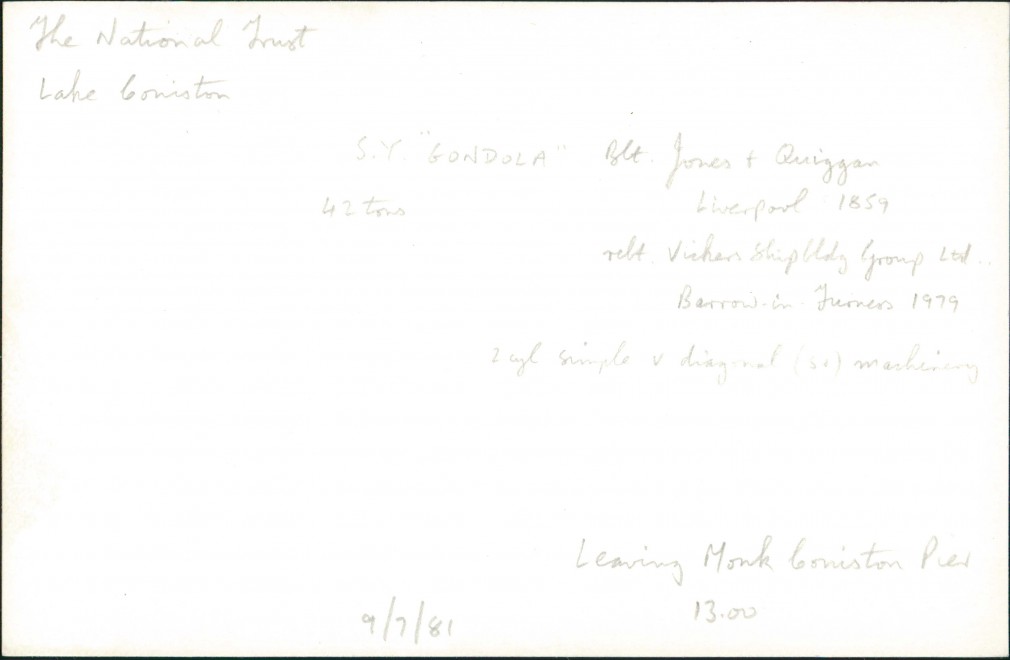 The National Trust
Lake Coniston
S.Y. "GONDOLA" Blt. Jones + Quiggan
42 tons Liverpool 1859
reblt. Vickers Shipbldg Group Ltd.
Barrow-in-Furness 1979
2 cyl simple v diagonal machinery
Leaving Monk Coniston Pier
9/7/81 13.00